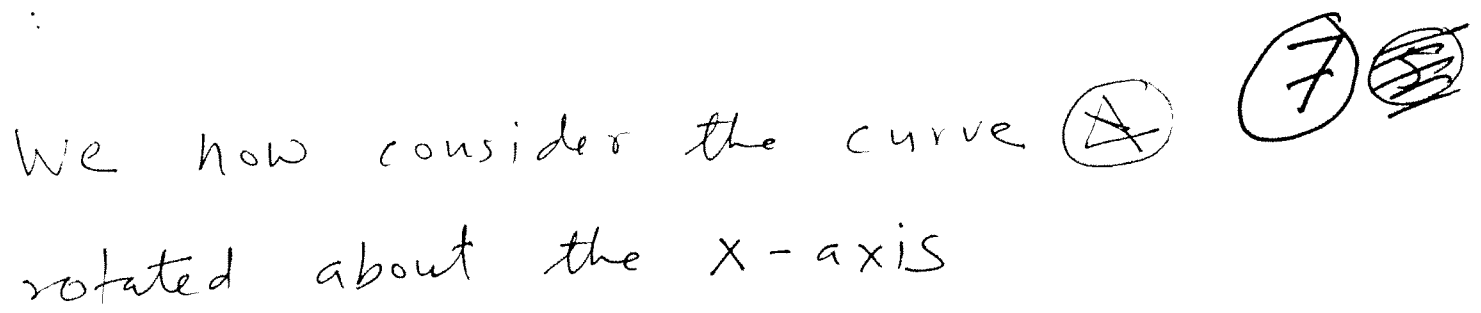 We now consider the curve Ⓐ 7
rotated about the x-axis